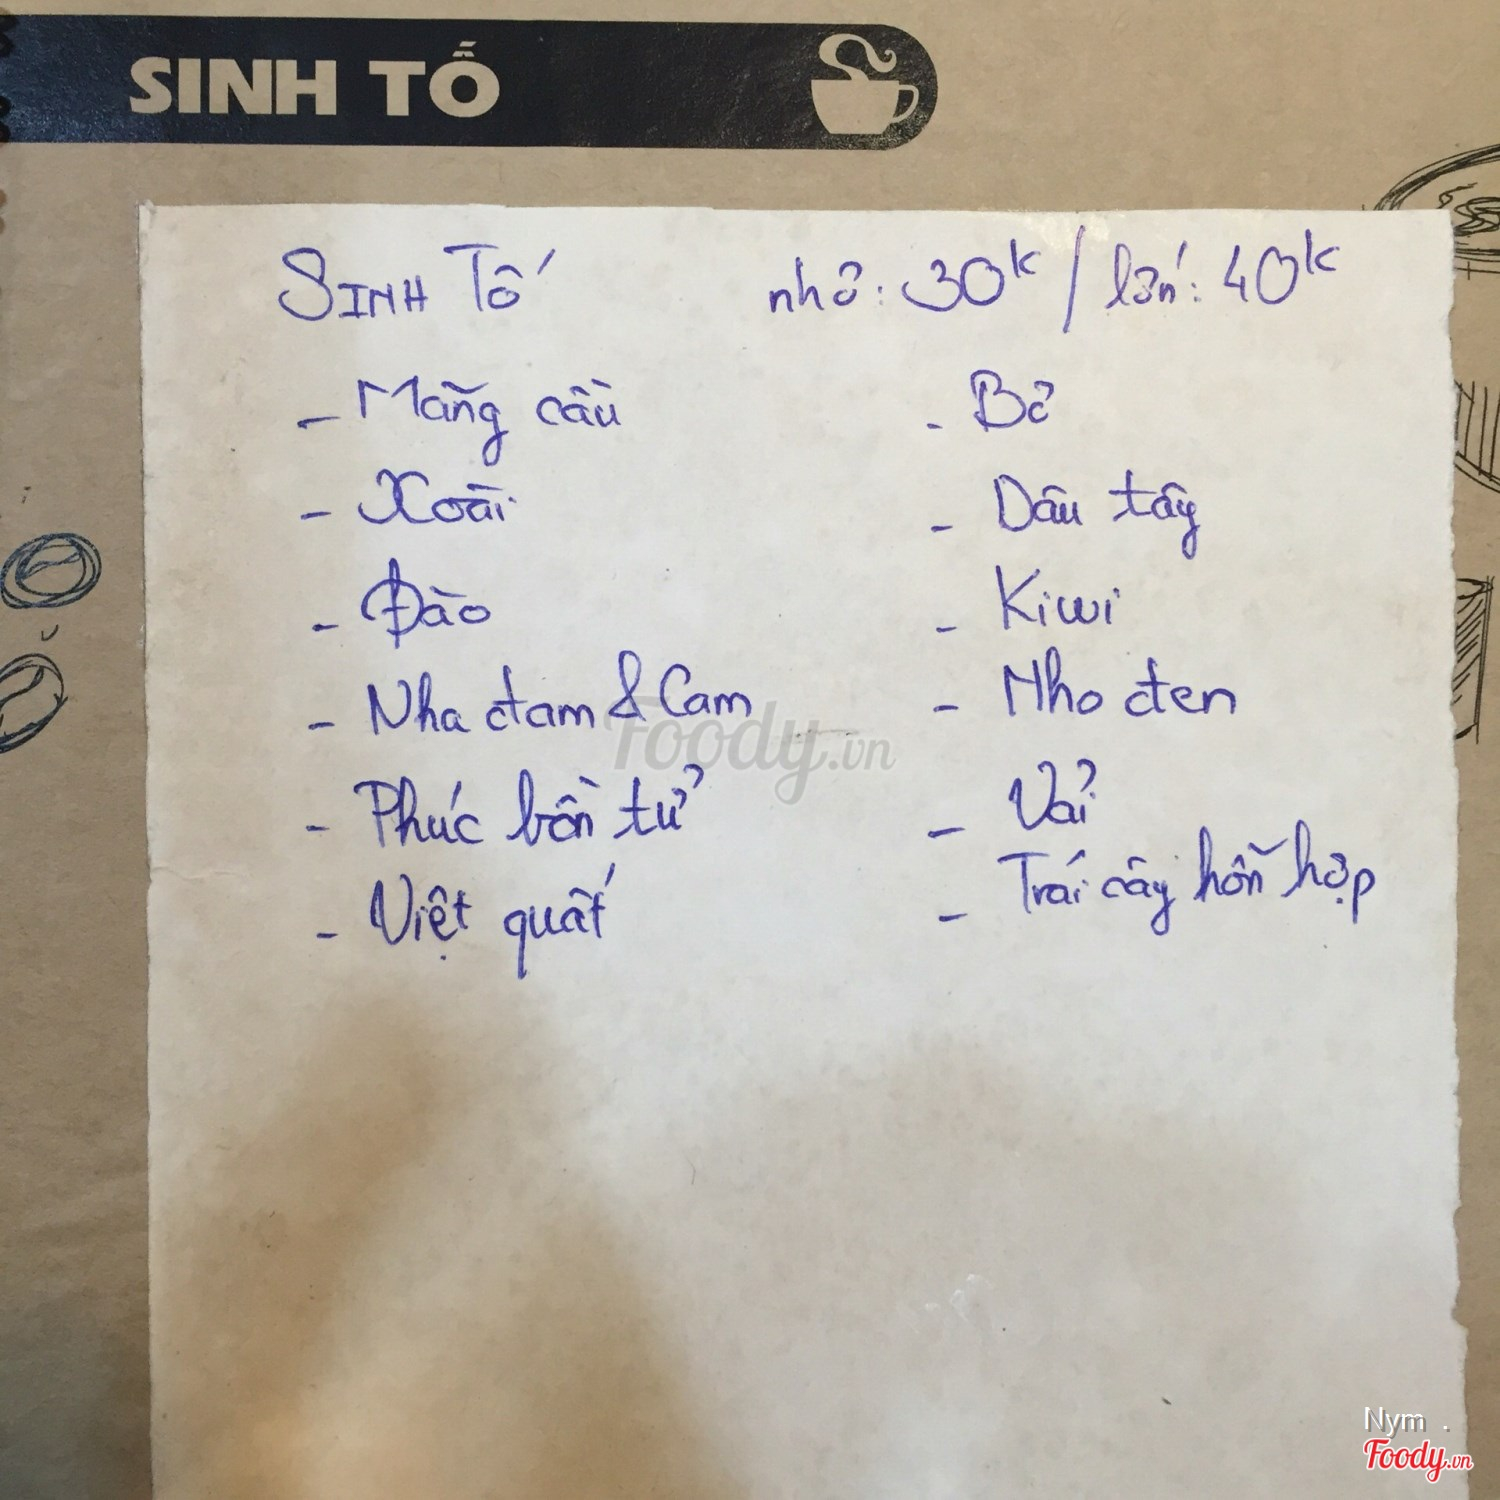 SINH TỐ
SINH TỐ nhỏ: 30K / lớn: 40K
- Mãng cầu
- Xoài
- Đào
- Nha đam & Cam
- Phúc bồn tử
- Việt quất
- Bơ
- Dâu tây
- Kiwi
- Nho đen
- Vải
- Trái cây hỗn hợp
Foody.vn
Nym .
Foody.vn